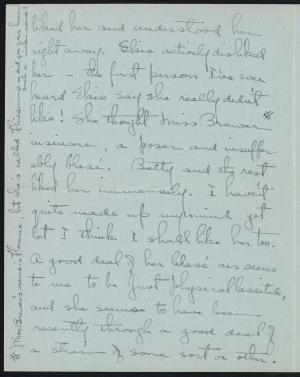 liked her and understood her
right away. Elsie actively disliked
her – the first person I've ever
heard Elsie say she really didn't
like! She thought Miss Brewer *
insincere, a poser and insuffer-
ably blasé. Betty and the rest
liked her immensely. I haven't
quite made up my mind yet
but I think I shall like her too.
A good deal of her blasé air seems
to me to be just physical lassitude,
and she seems to have been
recently through a good deal of
a strain of some sort or other.
* Miss Brewer's name is but she's called